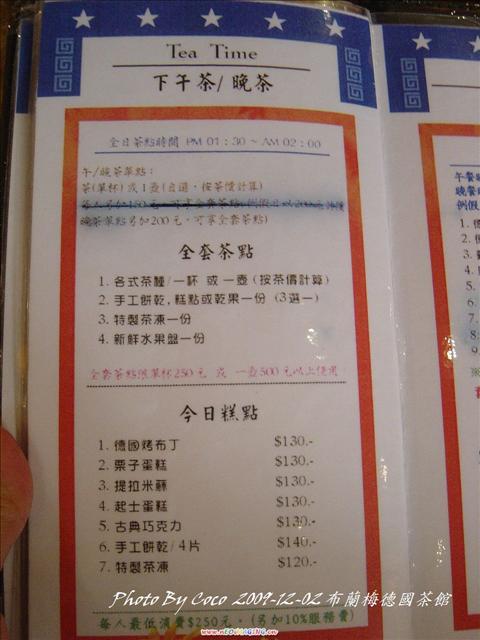 Tea Time
下午茶/ 晚茶
全日茶點時間 PM 01:30 ~ AM 02:00
午/晚茶單點:
茶(單杯) 或 1 壺(自選, 按茶價計算)
晚茶單點另加200元, 可享全套茶點)
全套茶點
1. 各式茶種/一杯 或 一壺 (按茶價計算)
2. 手工餅乾, 糕點或乾果一份 (3選一)
3. 特製茶凍一份
4. 新鮮水果盤一份
全套茶點限單杯250元 或 一壺500元以上使用
今日糕點
1. 德國烤布丁 $130.-
2. 栗子蛋糕 $130.-
3. 提拉米蘇 $130.-
4. 起士蛋糕 $130.-
5. 古典巧克力 $130.-
6. 手工餅乾/4片 $140.-
7. 特製茶凍 $120.-
每人最低消費$250元, (另加10%服務費)
Photo By Coco 2009-12-02 布蘭梅德國茶館